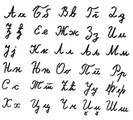 Аа Бб Вв Гг Дд
Ђђ Ее Жж Зз Ии
Јј Кк Лл Љљ Мм
Нн Њњ Оо Пп Рр
Сс Тт Ћћ Уу Фф
Хх Цц Чч Џџ Шш